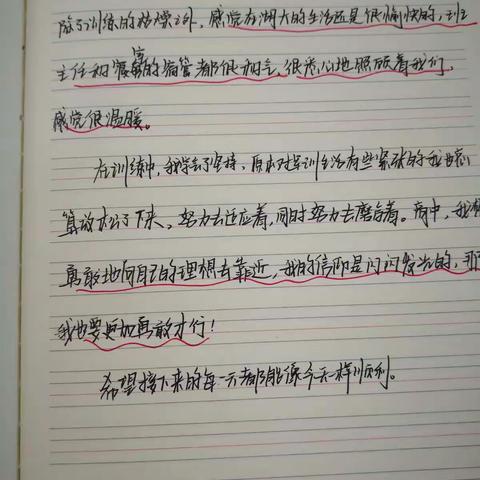 除了训练的枯燥之外，感觉在湖大的生活还是很愉快的，班
主任和寝室的宿管都很和气，很悉心地照顾着我们，
感觉很温暖。
在训练中，我学会了坚持，原本对军训生活有些紧张的我也
算放松了下来，努力去适应着，同时努力去磨合着。高中，我
勇敢地向自己的理想去靠近，我的信仰是闪闪发光的，那
我也要更加勇敢才行！
希望接下来的每一天都能像今天一样顺利。